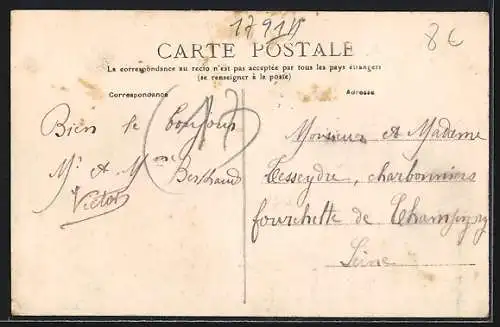 17914
8c
CARTE POSTALE
La correspondance au recto n'est pas acceptée par tous les pays étrangers
(se renseigner à la poste)
Correspondance
Adresse
47
Bien le bonjour
Mr et Mme Bertrand
Victor
Monsieur et Madame
Tesseydre, charbonniers
fourchette de Champigny
Seine